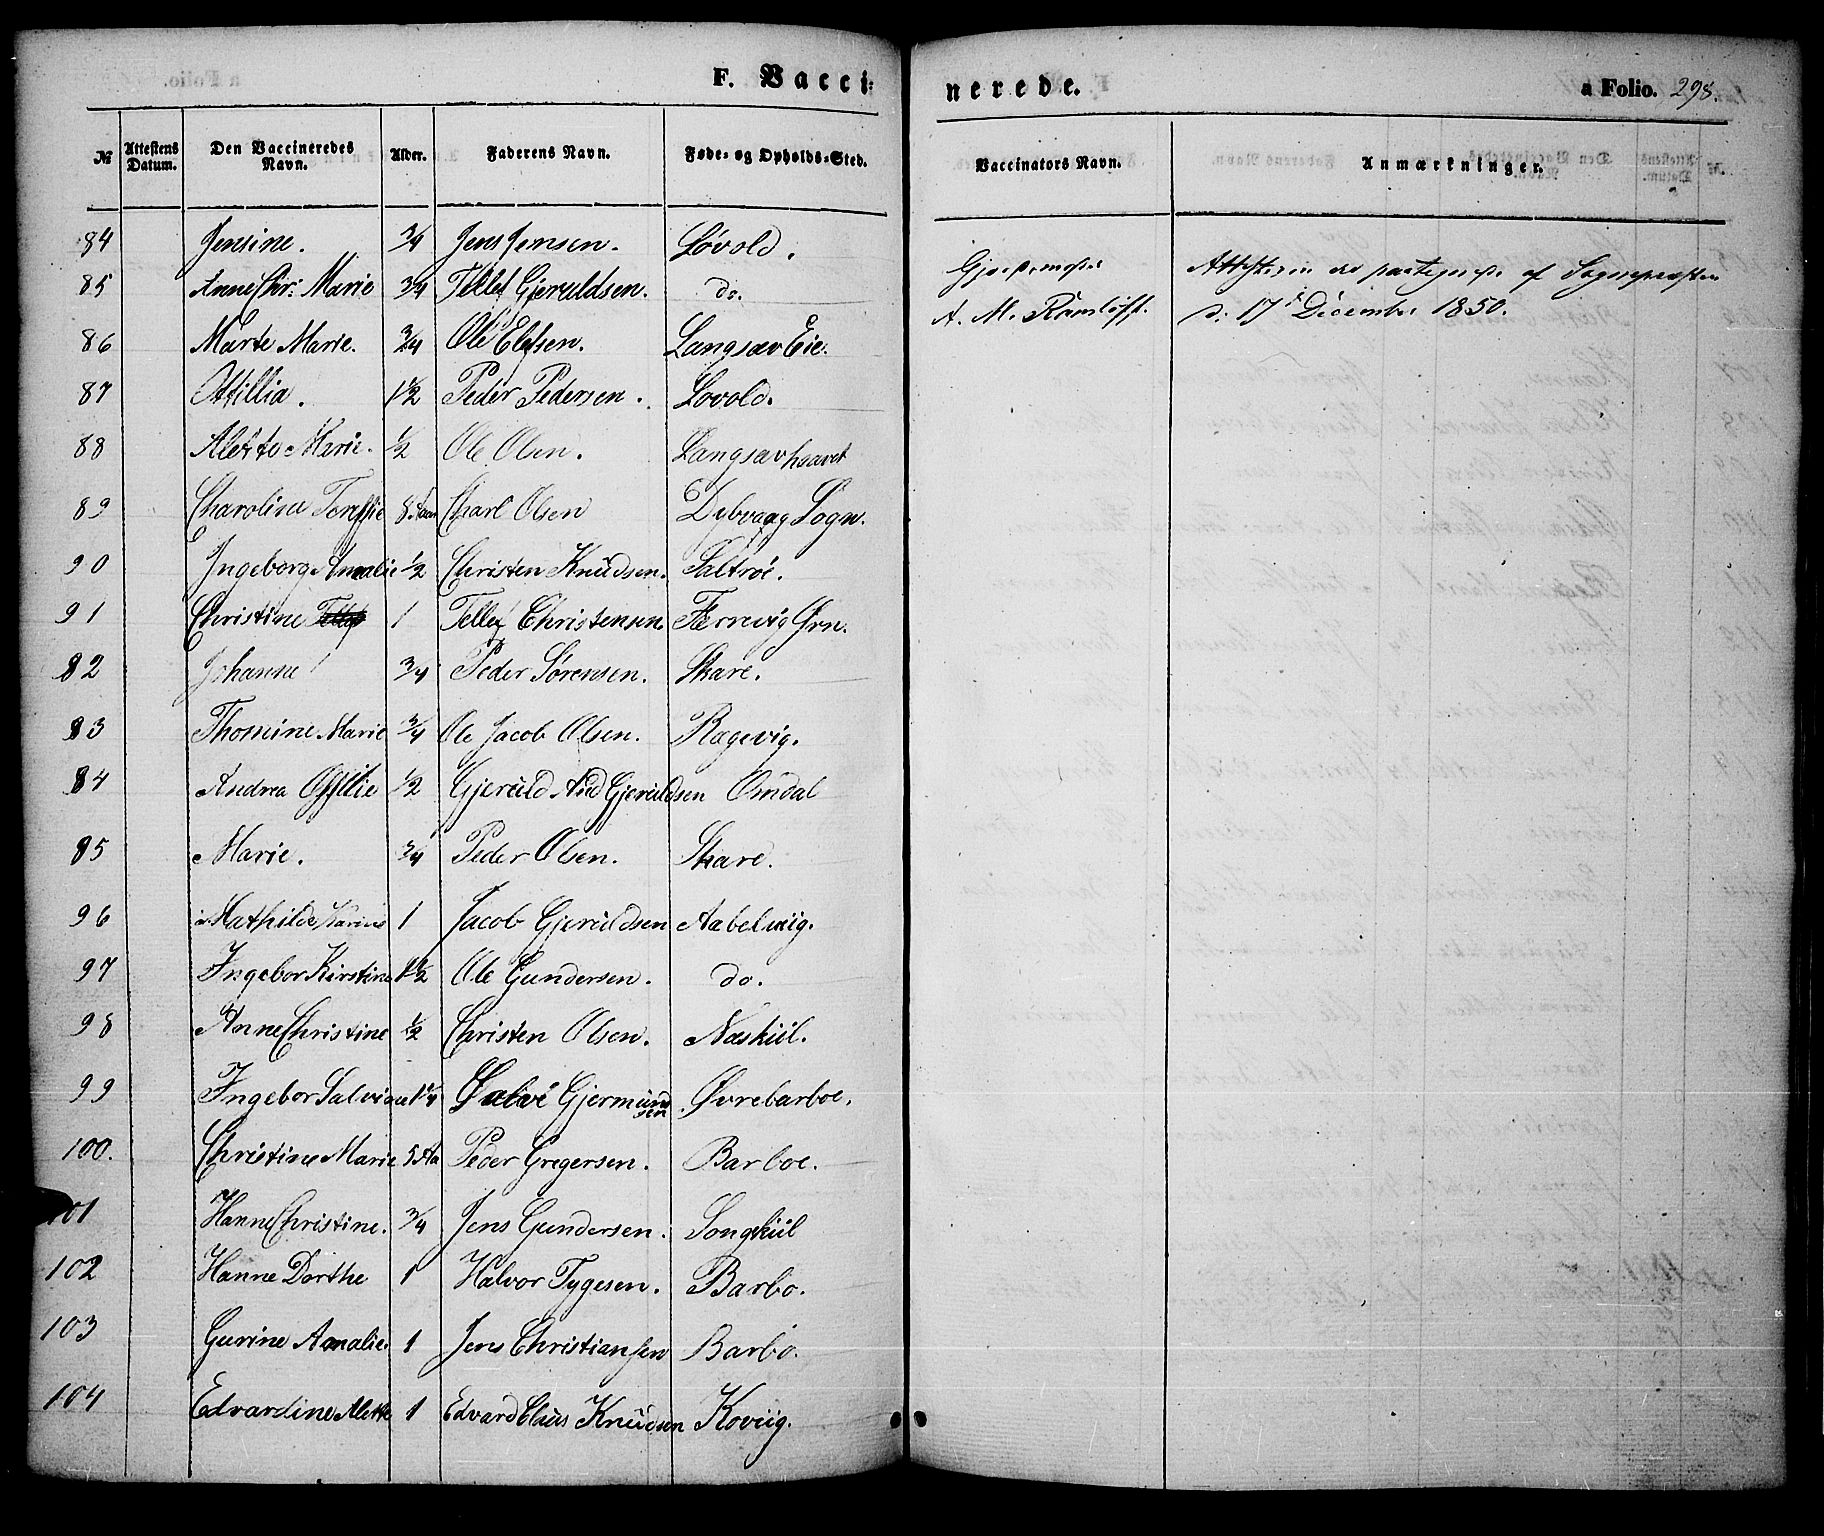 F. Vacci-
nerede.
a Folio. 298.
№ Attestens Datum. Den Vaccineredes Navn. Alder. Faderens Navn. Føde- og Opholds-Sted. Vaccinators Navn. Anmærkninger.
84 Jensine. 3/4 Jens Jensen. Løvold.
85 Anne Chr: Marie 3/4 Tellef Gjeruldsen. do.
A. M. Rømløfft. d. 17 December 1850.
86 Marte Marie. 3/4 Ole Elefsen. Langsæv Eie.
87 Ottillia. 1 1/2 Peder Pedersen. Lovold.
88 Alette Marie. 1/2 Ole Olsen. Langsævhaavet
89 Charolina Tereffie 8 Aar Charl Olsen Dybvaag Sogn.
90 Ingeborg Amalie 1/2 Christen Knudsen. Saltrøe.
91 Christine Tellef 1 Tellef Christensen. Færrevig Grn.
82 Johanne 3/4 Peder Sørensen. Skare.
83 Thomine Marie 3/4 Ole Jacob Olsen. Ragevig.
84 Andrea Offilie 1/2 Gjeruld And Gjeruldsen Omdal
85 Marie. 3/4 Peder Olsen. Skare.
96 Mathilde Karine 1 Jacob Gjeruldsen Aabelviig.
97 Ingebor Kirstine 1 1/2 Ole Gundersen. do.
98 Anne Christine 1/2 Christen Olsen. Næskiil.
99 Ingebor Salvine 1 1/4 Salve Gjermundsen Øvrebarboe.
100. Christine Marie 5 Aa Peder Gregersen. Barboe.
101 Hanne Christine. 3/4 Jens Gundersen. Songekiil
102 Hanne Dorthe 1 Halvor Tygesen. Barbo.
103 Gurine Amalie. 1 Jens Christiansen Barbo.
104 Edvardine Alette 1 Edvard Claus Knudsen Koviig.